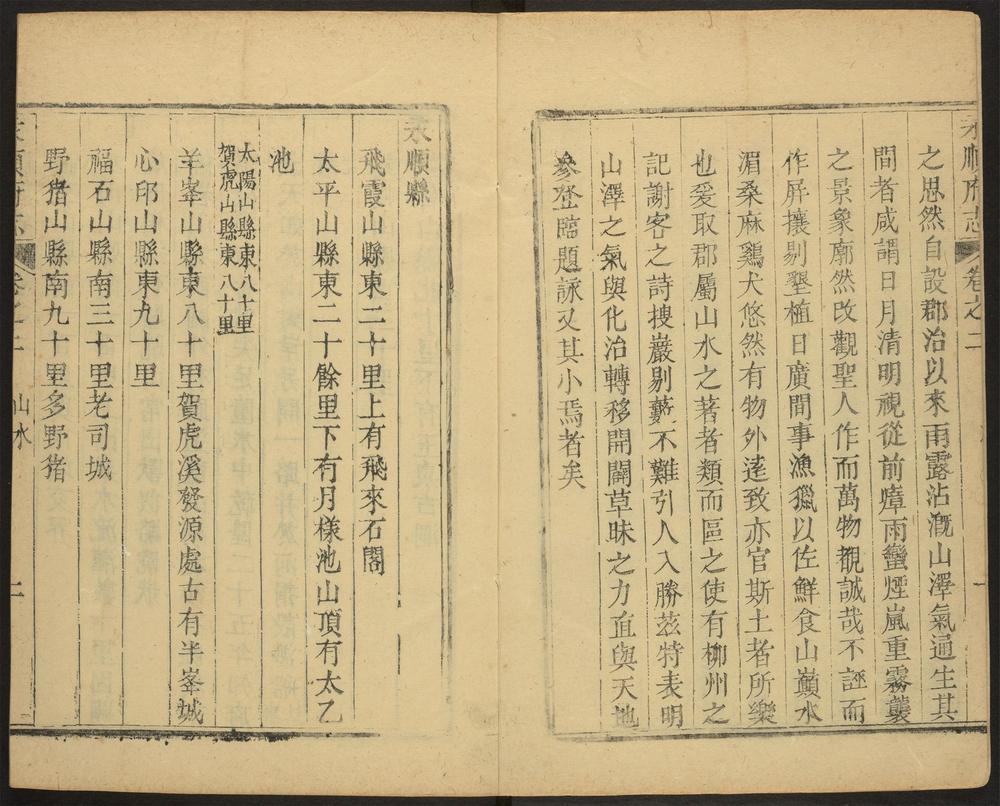 永順府志 卷之二
之思然自設郡治以來雨露沾溉山澤氣通生其
間者咸謂日月清明視從前瘴雨蠻煙嵐重霧襲
之景象廓然改觀聖人作而萬物覩誠哉不誣而
作屏攘剔墾植日廣間事漁獵以佐鮮食山巔水
湄桑麻鷄犬悠然有物外逺致亦官斯土者所樂
也爰取郡屬山水之著者類而區之使有柳州之
記謝客之詩搜巖剔藪不難引人入勝茲特表明
山澤之氣與化治轉移開闢草昧之力直與天地
參登臨題詠又其小焉者矣
永順縣
飛霞山縣東二十里上有飛來石閣
太平山縣東二十餘里下有月樣池山頂有太乙
池
太陽山縣東八十里
賀虎山縣東八十里
羊峯山縣東八十里賀虎溪發源處古有半峯城
心印山縣東九十里
福石山縣南三十里老司城
野猪山縣南九十里多野猪
永順府志 卷之二 山水 二